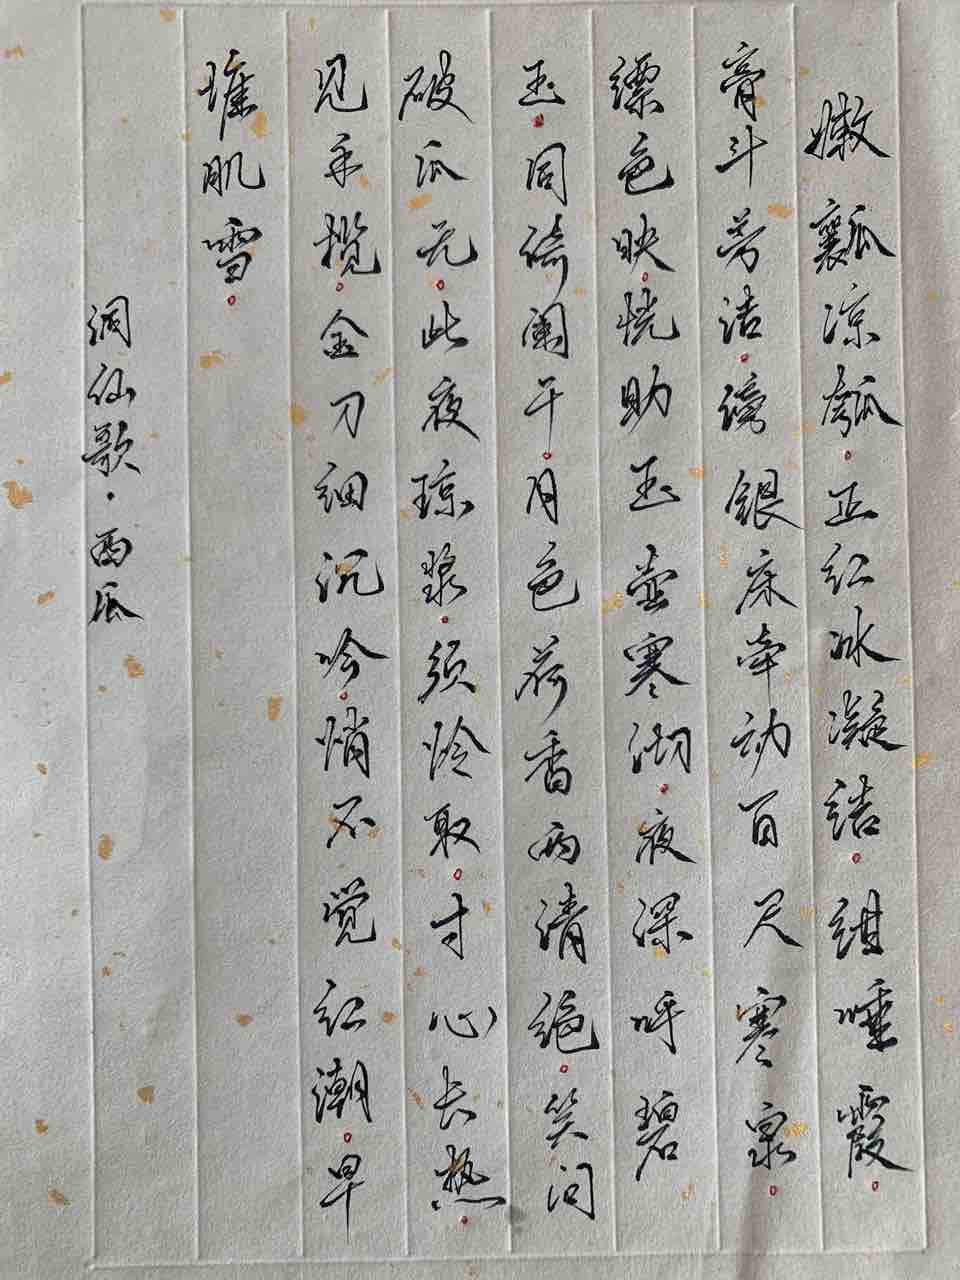 嫩瓤凉瓠。正红冰凝结。绀唾霞。
膏斗芳洁。傍银床牵动百尺寒泉。
缥色映。恍助玉壶寒沏。夜深呼碧
玉。同倚阑干。月色荷香两清绝。笑问
破瓜无。此夜琼浆。须怜取。寸心长热。
见手揽。金刀细沉吟。悄不觉红潮。早
堆肌雪。
洞仙歌·西瓜